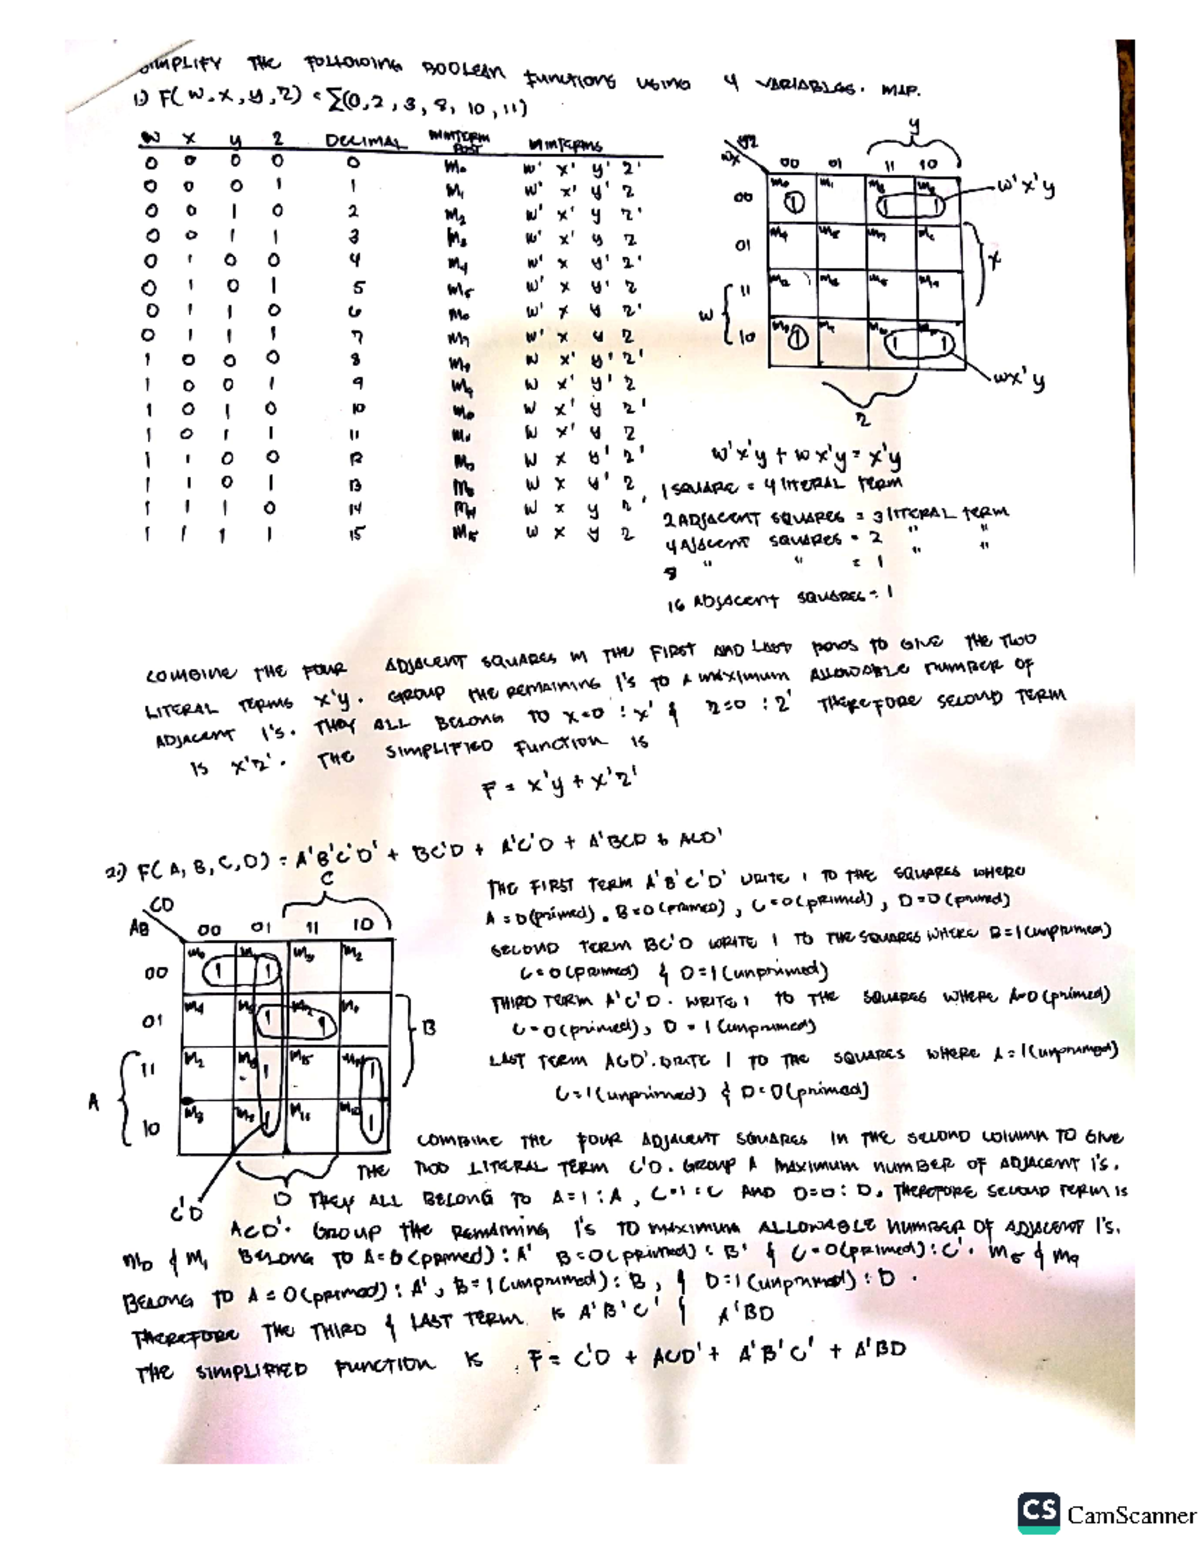 SIMPLIFY THE FOLLOWING BOOLEAN FUNCTIONS USING 4 VARIABLES. MAP.
1) F(W,X,Y,Z) = Σ(0,2,3,8,10,11)
W X Y Z DECIMAL MINTERM POST MINTERMS
0 0 0 0 0 m0 w' x' y' z'
0 0 0 1 1 m1 w' x' y' z
0 0 1 0 2 m2 w' x' y z'
0 0 1 1 3 m3 w' x' y z
0 1 0 0 4 m4 w' x y' z'
0 1 0 1 5 m5 w' x y' z
0 1 1 0 6 m6 w' x y z'
0 1 1 1 7 m7 w' x y z
1 0 0 0 8 m8 w x' y' z'
1 0 0 1 9 m9 w x' y' z
1 0 1 0 10 m10 w x' y z'
1 0 1 1 11 m11 w x' y z
1 1 0 0 12 m12 w x y' z'
1 1 0 1 13 m13 w x y' z
1 1 1 0 14 m14 w x y z'
1 1 1 1 15 m15 w x y z
y
yz
wx
00 01 11 10
00 m0 1 m1 1 1 w'x'y
01 m4 m5 m7 m6 x
w 11
10 1 1 1 wx'y
z
w'x'y + wx'y = x'y
1 SQUARE = 4 LITERAL TERM
2 ADJACENT SQUARES = 3 LITERAL TERM
4 AJACENT SQUARES = 2 " "
8 " " = 1 " "
16 ADJACENT SQUARES = 1
COMBINE THE FOUR ADJACENT SQUARES IN THE FIRST AND LAST ROWS TO GIVE THE TWO
LITERAL TERMS x'y. GROUP THE REMAINING 1's TO A MAXIMUM ALLOWABLE NUMBER OF
ADJACENT 1's. THEY ALL BELONG TO x=0 : x' & z=0 : z' THEREFORE SECOND TERM
IS x'z'. THE SIMPLIFIED FUNCTION IS
F = x'y + x'z'
2) F(A,B,C,D) = A'B'C'D' + BC'D + A'C'D + A'BCD + ACD'
C
CD
AB 00 01 11 10
00 m0 1 1 m3 m2
01 m4 m5 1 1 m6 B
A 11 1 m15 1
10 m8 m9 1 m11 m10 1
D
C'D
THE FIRST TERM A'B'C'D' WRITE 1 TO THE SQUARES WHERE
A=0(primed), B=0(primed), C=0(primed), D=0(primed)
SECOND TERM BC'D WRITE 1 TO THE SQUARES WHERE B=1(unprimed)
C=0(primed) & D=1(unprimed)
THIRD TERM A'C'D. WRITE 1 TO THE SQUARES WHERE A=0(primed)
C=0(primed), D=1(unprimed)
LAST TERM ACD'. WRITE 1 TO THE SQUARES WHERE A=1(unprimed)
C=1(unprimed) & D=0(primed)
COMBINE THE FOUR ADJACENT SQUARES IN THE SECOND COLUMN TO GIVE
THE TWO LITERAL TERM C'D. GROUP A MAXIMUM NUMBER OF ADJACENT 1's.
THEY ALL BELONG TO A=1:A, C=1:C AND D=0:D. THEREFORE SECOND TERM IS
ACD'. GROUP THE REMAINING 1's TO MAXIMUM ALLOWABLE NUMBER OF ADJACENT 1's.
m0 & m1 BELONG TO A=0(primed):A' B=0(primed):B' & C=0(primed):C'. m5 & m9
BELONG TO A=0(primed):A', B=1(unprimed):B, & D=1(unprimed):D.
THEREFORE THE THIRD & LAST TERM IS A'B'C' & A'BD
THE SIMPLIFIED FUNCTION IS F = C'D + ACD' + A'B'C' + A'BD
CS CamScanner